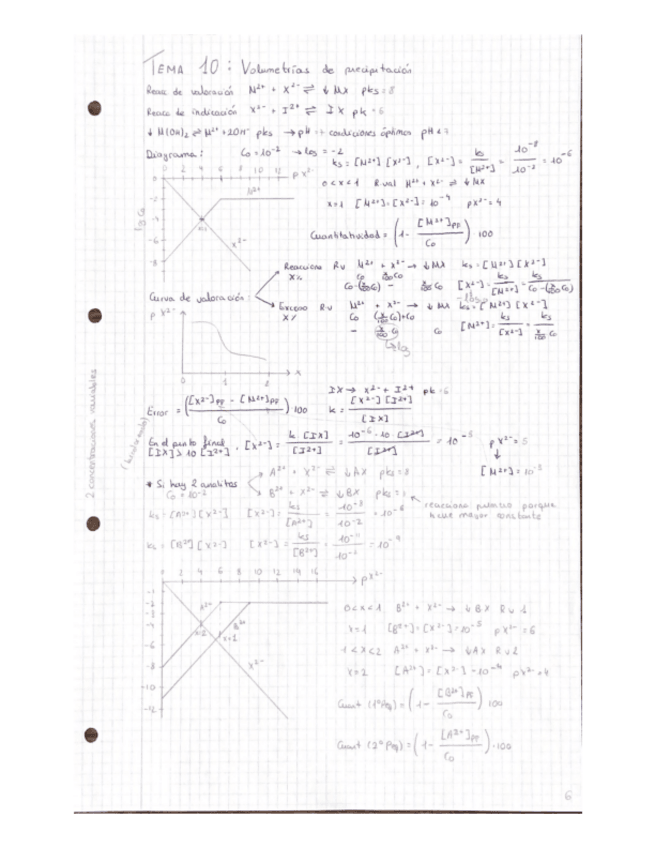 TEMA 10: Volumetrías de precipitación
Reacc de valoración M²⁺ + X²⁻ ⇌ ↓MX pks=8
Reacc de indicación X²⁻ + I²⁺ ⇌ IX pk=6
↓M(OH)₂ ⇌ M²⁺+2OH⁻ pks → pH condiciones óptimas pH<7
Diagrama: C₀=10⁻² → log=-2
ks=[M²⁺][X²⁻], [X²⁻]= ks/[M²⁺] = 10⁻⁸/10⁻² = 10⁻⁶
0 2 4 6 8 10 12 pX²⁻
log C₀
-2
-4
-6
-8
M²⁺
X²⁻
0<x<1 R.val M²⁺+X²⁻ ⇌ ↓MX
x=1 [M²⁺]=[X²⁻]=10⁻⁴ pX²⁻=4
Cuantitatividad = (1- [M²⁺]PP/C₀) 100
Curva de valoración:
Reacciona X% Rv M²⁺ + X²⁻ → ↓MX ks=[M²⁺][X²⁻]
C₀ x/100 C₀
C₀-(x/100 C₀) - x/100 C₀ [X²⁻]= ks/[M²⁺] = ks/(C₀-(x/100 C₀))
Exceso X% Rv M²⁺ + X²⁻ → ↓MX ks=[M²⁺][X²⁻]
C₀ (x/100 C₀)+C₀
- (x/100 C₀) C₀ [M²⁺]= ks/[X²⁻] = ks/(x/100 C₀)
log
pX²⁻
0 1 2 x
Error = (([X²⁻]PP - [M²⁺]PP)/C₀) 100
IX → X²⁻ + I²⁺ pk=6
k = [X²⁻][I²⁺]/[IX]
En el punto final [IX]≥10[I²⁺], [X²⁻]= k[IX]/[I²⁺] = 10⁻⁶·10[I²⁺]/[I²⁺] = 10⁻⁵ pX²⁻=5
↓
[M²⁺]=10⁻³
2 concentraciones variables
* Si hay 2 analitos
C₀=10⁻²
A²⁺ + X²⁻ ⇌ ↓AX pks=8
B²⁺ + X²⁻ ⇌ ↓BX pks=
reacciona primero porque tiene mayor constante
ks=[A²⁺][X²⁻] [X²⁻]= ks/[A²⁺] = 10⁻⁸/10⁻² = 10⁻⁶
ks=[B²⁺][X²⁻] [X²⁻]= ks/[B²⁺] = 10⁻¹¹/10⁻² = 10⁻⁹
0 2 4 6 8 10 12 14 16 pX²⁻
-2
-4
-6
-8
-10
-12
A²⁺
B²⁺
x=2
x=1
X²⁻
0<x<1 B²⁺ + X²⁻ → ↓BX Rv1
x=1 [B²⁺]=[X²⁻]=10⁻⁵ pX²⁻=6
1<x<2 A²⁺ + X²⁻ → ↓AX Rv2
x=2 [A²⁺]=[X²⁻]=10⁻⁴ pX²⁻=4
Cuant (1ºPeq)=(1- [B²⁺]PE/C₀) 100
Cuant (2ºPeq)=(1- [A²⁺]PP/C₀)·100
6